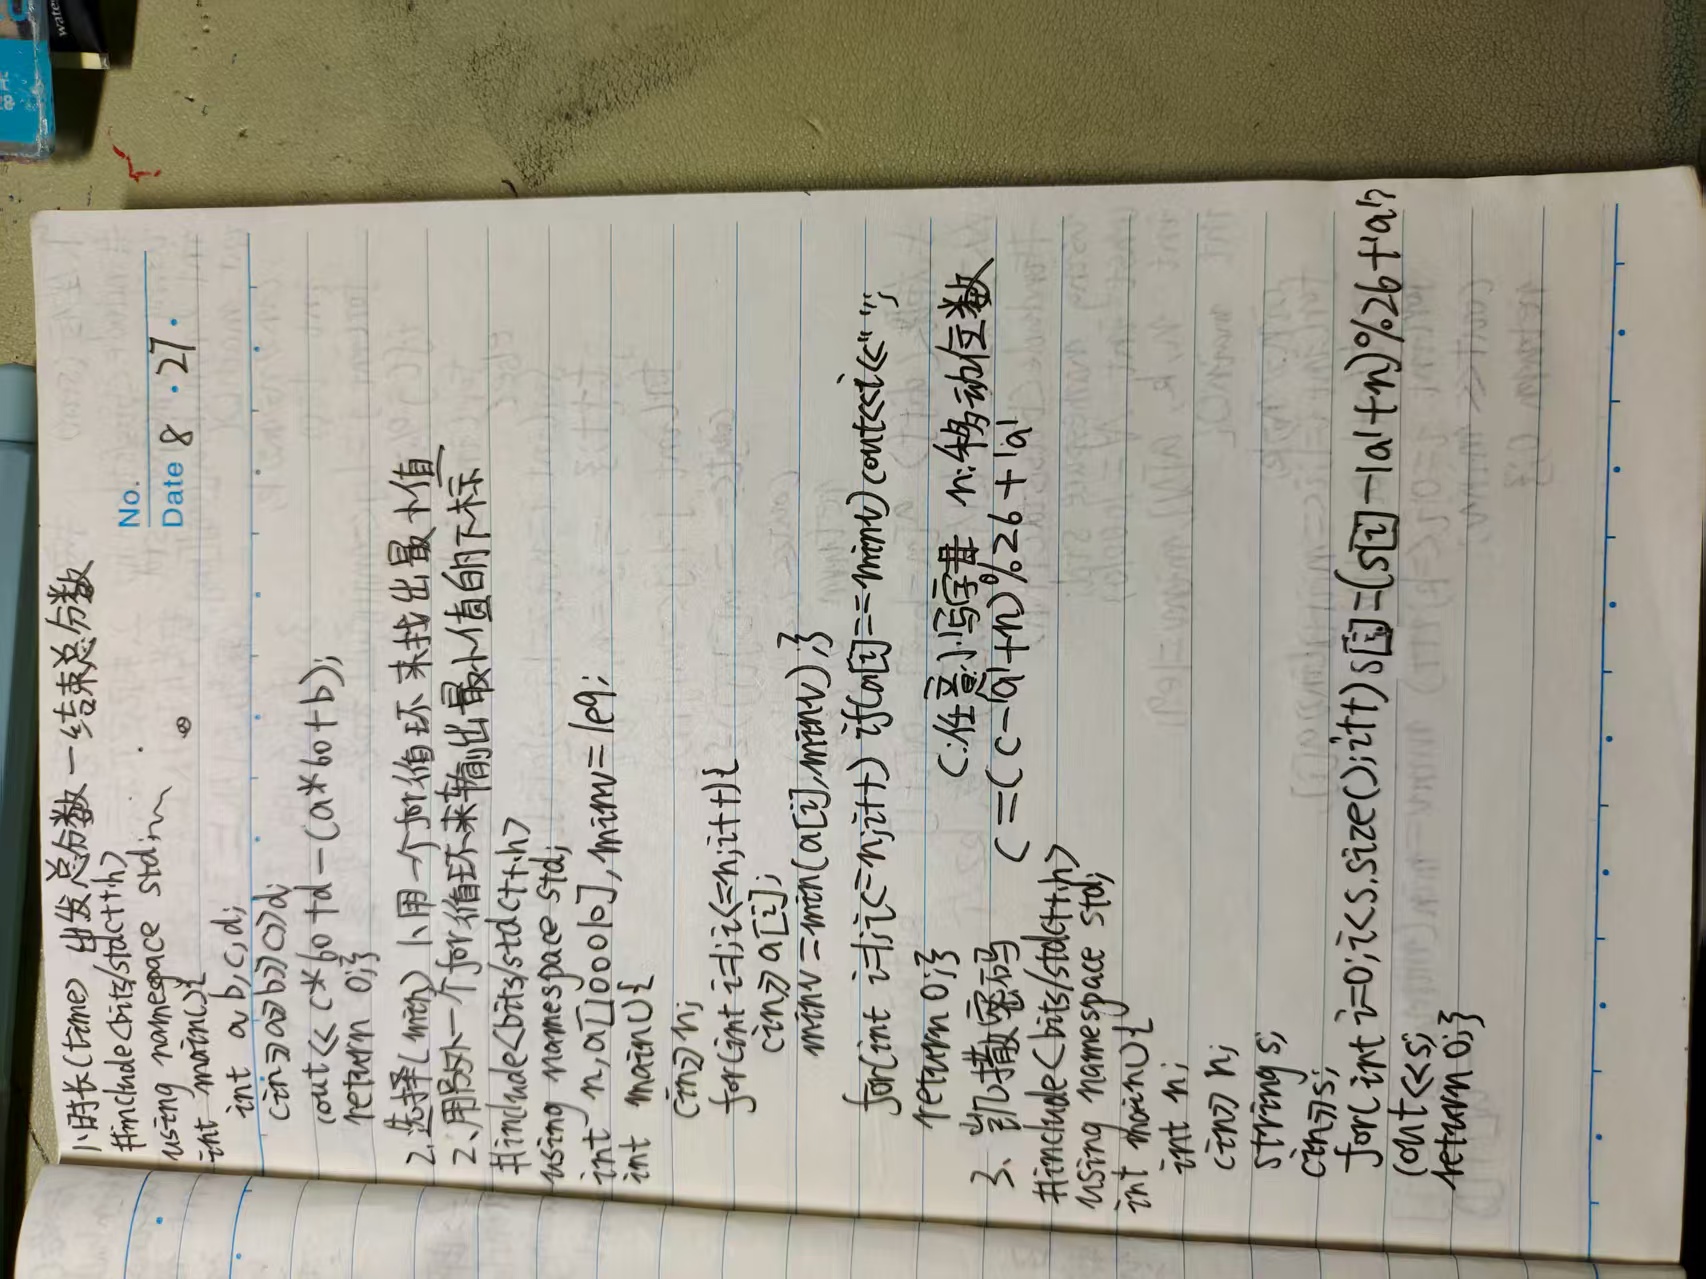 No.
Date 8 · 27 ·
1、时长(time) 出发总分数 - 结束总分数
#include<bits/stdc++.h>
using namespace std;
int main(){
int a,b,c,d;
cin>>a>>b>>c>>d;
cout<<c*60+d-(a*60+b);
return 0;}
2.选择(min) 1、用一个for循环来找出最小值
2、用另外一个for循环来输出最小值的下标
#include<bits/stdc++.h>
using namespace std;
int n,a[10010],minv=1e9;
int main(){
cin>>n;
for(int i=1;i<=n;i++){
cin>>a[i];
minv=min(a[i],minv);}
for(int i=1;i<=n;i++) if(a[i]==minv) cout<<i<<" ";
return 0;}
3、凯撒密码 c:任意小写字母 n:移动位数
c=(c-'a'+n)%26+'a'
#include<bits/stdc++.h>
using namespace std;
int main(){
int n;
cin>>n;
string s;
cin>>s;
for(int i=0;i<s.size();i++) s[i]=(s[i]-'a'+n)%26+'a';
cout<<s;
return 0;}